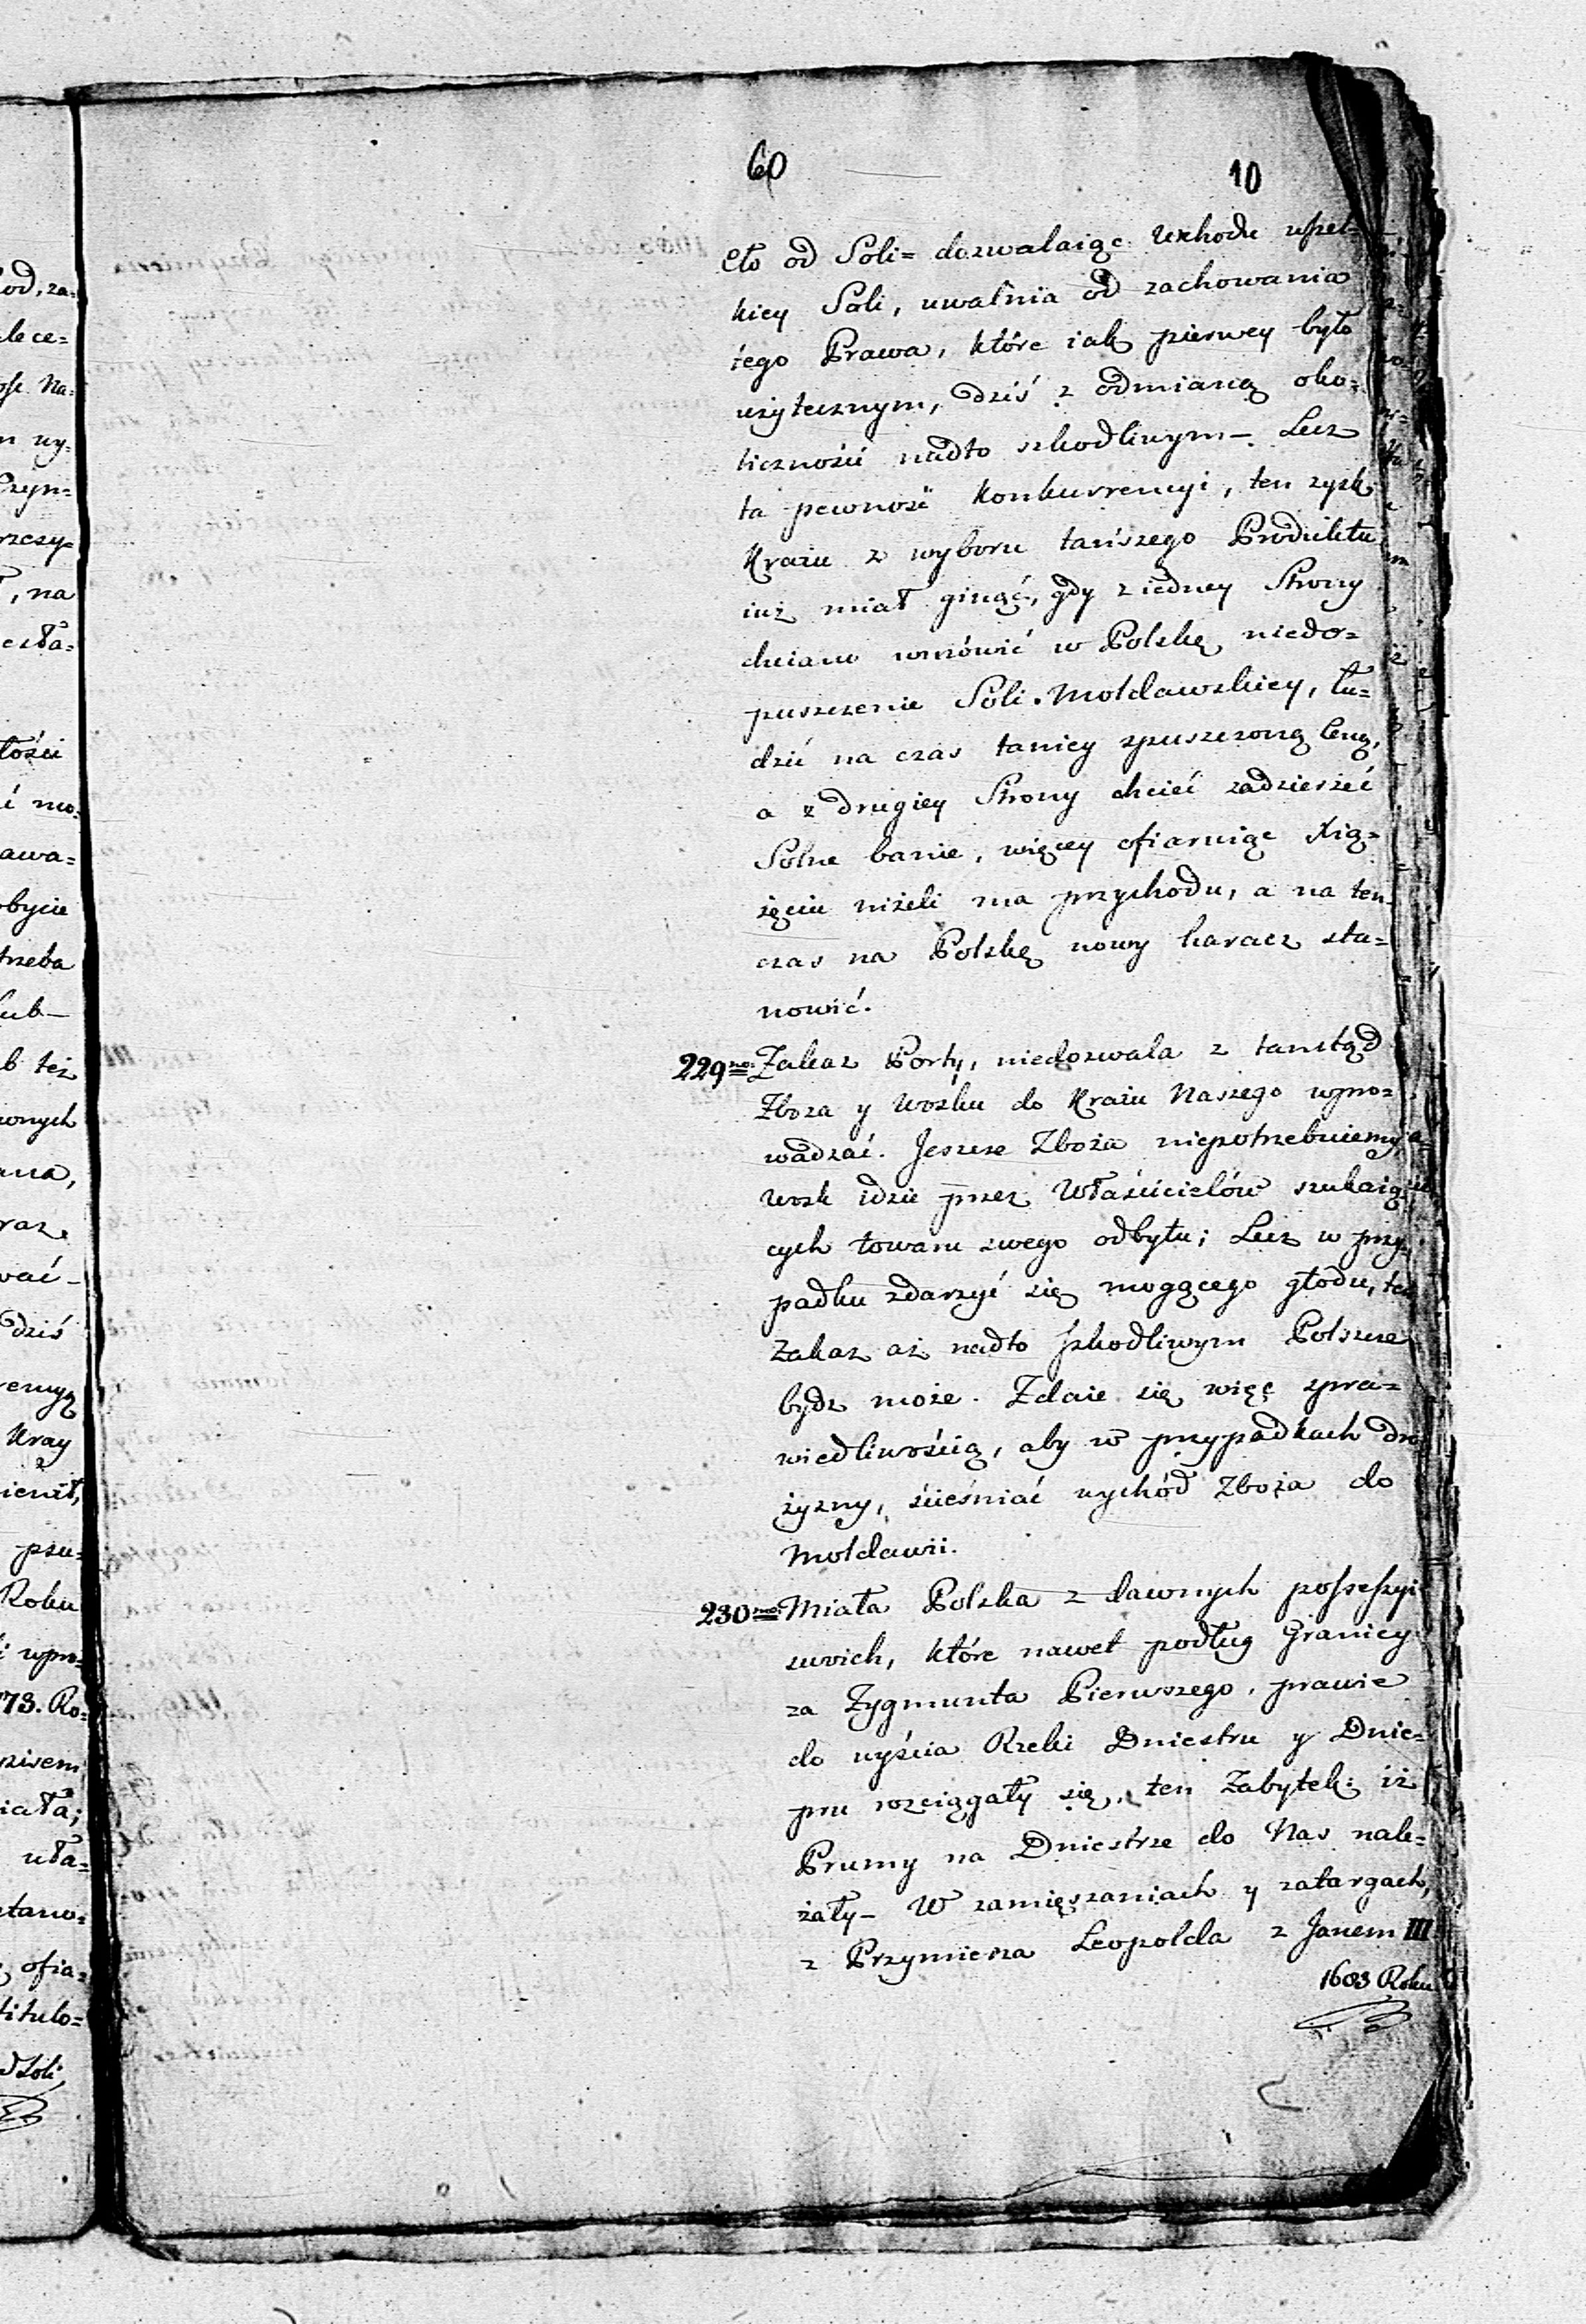 60
10
Cło od Soli= dozwalaiąc wchodu wszel=
kiey Soli, uwalnia od zachowania
tego Prawa, które iak pierwey było
użytecznym, dziś z odmianą oko=
liczności nadto szkodliwym – Lecz
ta pewność Konkurrencyi, ten zysk
Kraiu z wyboru tańszego Produktu
iuż miał ginąć, gdy z iedney Strony
chciano wmówić w Polskę niedo=
puszczenie Soli Mołdawskiey, łu=
dzić na czas taniey spuszczoną Ceną,
a z drugiey Strony chcieć zadzierżeć
Solne banie, więcey ofiaruiąc Xią=
żęciu niżeli ma przychodu, a na ten
czas na Polskę nowy haracz sta=
nowić.
229no. Zakaz Porty, niedozwala z tamtąd
Zboża y Wosku do Kraiu Naszego wpro=
wadzać. Jeszcze Zboża niepotrzebuiemy
Wosk idzie przez Właścicielów szukaią
cych towaru swego odbytu; Lecz w przy
padku zdarzyć się mogącego głodu, ten
Zakaz aż nadto szkodliwym Polszcze
bydz może. Zdaie się więc spra=
wiedliwością, aby w przypadkach dro
żyzny, ścieśniać wychód Zboża do
Mołdawii.
230mo. Miała Polska z dawnych possessyi
swoich, które nawet podług Granicy
za Zygmunta Pierwszego, prawie
do uyścia Rzeki Dniestru y Dnie=
pru rozciągały się, ten Zabytek: iż
Prumy na Dniestrze do Nas nale=
żały – W zamięszaniach y zatargach,
z Przymierza Leopolda z Janem III
1683 Roku
od, za=
lece=
Na=
wy=
Czyn=
rzeczy=
, na
esła=
łości
ć mo=
awa=
obycie
trzeba
Lub –
b też
onych
ana,
raz
wać –
dziś
rencyą
Kray
ienił,
psu=
Roku
wpro=
73. Ro=
pisem
iała;
uła=
stano=
ofia=
titulo=
d Soli